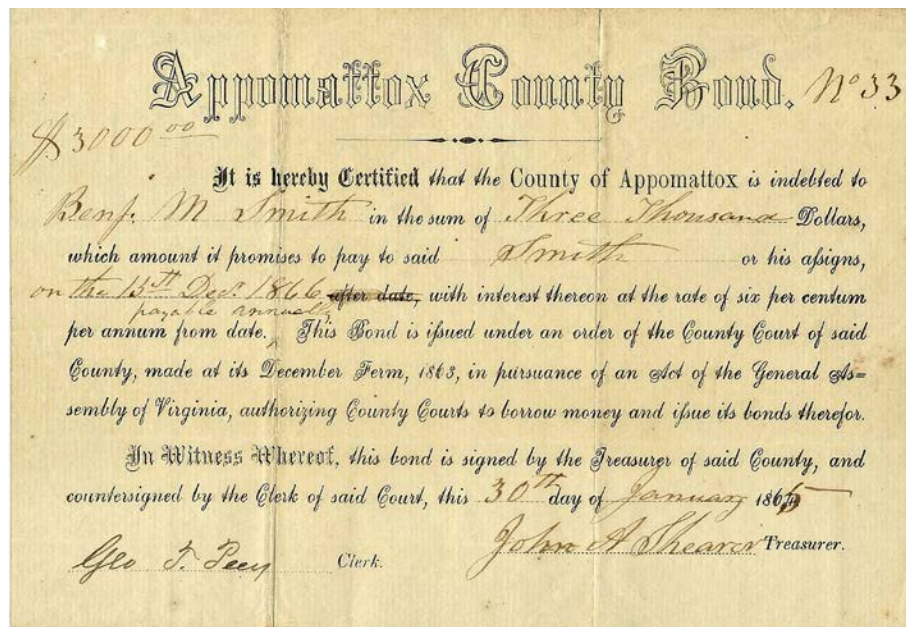 Appomattox County Bond. No 33
$3000 00
It is hereby Certified that the County of Appomattox is indebted to
Benj. M Smith in the sum of Three Thousand Dollars,
which amount it promises to pay to said Smith or his aſsigns,
on the 15th Decr. 1866 after date, with interest thereon at the rate of six per centum
payable annually
per annum from date. This Bond is iſsued under an order of the County Court of said
County, made at its December Term, 1863, in pursuance of an Act of the General As=
sembly of Virginia, authorizing County Courts to borrow money and iſsue its bonds therefor.
In Witness Whereof, this bond is signed by the Treasurer of said County, and
countersigned by the Clerk of said Court, this 30th day of January 1865
Geo T. Peery Clerk. John A Shearer Treasurer.